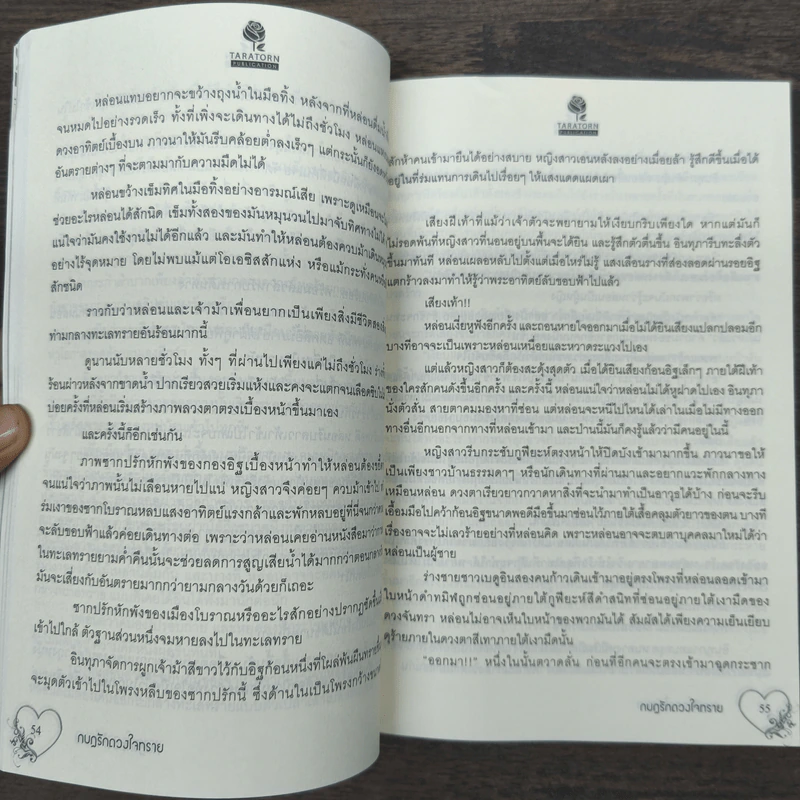 TARATORN
PUBLICATION
หล่อนแทบอยากจะขว้างถุงน้ำในมือทิ้ง หลังจากที่หล่อนดื่ม
จนหมดไปอย่างรวดเร็ว ทั้งที่เพิ่งจะเดินทางได้ไม่ถึงชั่วโมง
ดวงอาทิตย์เบื้องบน ภาวนาให้มันรีบคล้อยต่ำลงเร็วๆ แต่กระนั้นก็ยัง
อันตรายต่างๆ ที่จะตามมากับความมืดไม่ได้
หล่อนขว้างเข็มทิศในมือทิ้งอย่างอารมณ์เสีย เพราะดูเหมือน
ช่วยอะไรหล่อนได้สักนิด เข็มทั้งสองของมันหมุนวนไปมาจับทิศทางไม่ได้
แน่ใจว่ามันคงใช้งานไม่ได้อีกแล้ว และมันทำให้หล่อนต้องควบม้าเดินหน้า
อย่างไร้จุดหมาย โดยไม่พบแม้แต่โอเอซิสสักแห่ง หรือแม้กระทั่งคน
สักชนิด
ราวกับว่าหล่อนและเจ้าม้าเพื่อนยากเป็นเพียงสิ่งมีชีวิต
ท่ามกลางทะเลทรายอันร้อนผากนี้
ดูนานนับหลายชั่วโมง ทั้งๆ ที่ผ่านไปเพียงแค่ไม่ถึงชั่วโมง
ร้อนผ่าวหลังจากขาดน้ำ ปากเรียวสวยเริ่มแห้งและคงจะแตกจนเลือดซิบ
บ่อยครั้งที่หล่อนเริ่มสร้างภาพลวงตาตรงเบื้องหน้าขึ้นมาเอง
และครั้งนี้ก็อีกเช่นกัน
ภาพซากปรักหักพังของกองอิฐเบื้องหน้าทำให้หล่อนต้อง
จนแน่ใจว่าภาพนั้นไม่เลือนหายไปแน่ หญิงสาวจึงค่อยๆ ควบม้าเข้าไป
ร่มเงาของซากโบราณหลบแสงอาทิตย์แรงกล้าและพักหลบอยู่ที่นี่จนกว่า
จะลับขอบฟ้าแล้วค่อยเดินทางต่อ เพราะว่าหล่อนเคยอ่านหนังสือมาว่าการ
ในทะเลทรายยามค่ำคืนนั้นจะช่วยลดการสูญเสียน้ำได้มากกว่าตอนกลางวัน
มันจะเสี่ยงกับอันตรายมากกว่ายามกลางวันด้วยก็เถอะ
ซากปรักหักพังของเมืองโบราณหรืออะไรสักอย่างปรากฏชัดขึ้น
เข้าไปใกล้ ตัวฐานส่วนหนึ่งจมหายลงไปในทะเลทราย
อินทุภาจัดการผูกเจ้าม้าสีขาวไว้กับอิฐก้อนหนึ่งที่โผล่พ้นผืนทราย
จะมุดตัวเข้าไปในโพรงหลืบของซากปรักนี้ ซึ่งด้านในเป็นโพรงกว้าง
54
กบฏรักดวงใจทราย
TARATORN
PUBLICATION
สักห้าคนเข้ามายืนได้อย่างสบาย หญิงสาวเอนหลังลงอย่างเมื่อยล้า รู้สึกดีขึ้นเมื่อได้
อยู่ในที่ร่มแทนการเดินไปเรื่อยๆ ให้แสงแดดแผดเผา
เสียงฝีเท้าที่แม้ว่าเจ้าตัวจะพยายามให้เงียบกริบเพียงใด หากแต่มันก็
ไม่รอดพ้นที่หญิงสาวที่นอนอยู่บนพื้นจะได้ยิน และรู้สึกตัวตื่นขึ้น อินทุภารีบทะลึ่งตัว
ขึ้นมาทันที หล่อนเผลอหลับไปตั้งแต่เมื่อไหร่ไม่รู้ แสงเลือนรางที่ส่องลอดผ่านรอยอิฐ
แตกร้าวลงมาทำให้รู้ว่าพระอาทิตย์ลับขอบฟ้าไปแล้ว
เสียงเท้า!!
หล่อนเงี่ยหูฟังอีกครั้ง และถอนหายใจออกมาเมื่อไม่ได้ยินเสียงแปลกปลอมอีก
บางทีอาจจะเป็นเพราะหล่อนเหนื่อยและหวาดระแวงไปเอง
แต่แล้วหญิงสาวก็ต้องสะดุ้งสุดตัว เมื่อได้ยินเสียงก้อนอิฐเล็กๆ ภายใต้ฝีเท้า
ของใครสักคนดังขึ้นอีกครั้ง และครั้งนี้ หล่อนแน่ใจว่าหล่อนไม่ได้หูฝาดไปเอง อินทุภา
นั่งตัวสั่น สายตาคมมองหาที่ซ่อน แต่หล่อนจะหนีไปไหนได้เล่าในเมื่อไม่มีทางออก
ทางอื่นอีกนอกจากทางที่หล่อนเข้ามา และป่านนี้มันก็คงรู้แล้วว่ามีคนอยู่ในนี้
หญิงสาวรีบกระชับกูฟียะห์ตรงหน้าให้ปิดบังเข้ามามากขึ้น ภาวนาขอให้
เป็นเพียงชาวบ้านธรรมดาๆ หรือนักเดินทางที่ผ่านมาและอยากแวะพักกลางทาง
เหมือนหล่อน ดวงตาเรียวยาวกวาดหาสิ่งที่จะนำมาทำเป็นอาวุธได้บ้าง ก่อนจะรีบ
เอื้อมมือไปคว้าก้อนอิฐขนาดพอดีมือขึ้นมาซ่อนไว้ภายใต้เสื้อคลุมตัวยาวของตน บางที
เรื่องอาจจะไม่เลวร้ายอย่างที่หล่อนคิด เพราะหล่อนอาจจะตบตาบุคคลมาใหม่ได้ว่า
หล่อนเป็นผู้ชาย
ร่างชายชาวเบดูอินสองคนก้าวเดินเข้ามาอยู่ตรงโพรงที่หล่อนลอดเข้ามา
ใบหน้าดำทมิฬถูกซ่อนอยู่ภายใต้กูฟียะห์สีดำสนิทที่ซ่อนอยู่ภายใต้เงามืดของ
ดวงจันทรา หล่อนไม่อาจเห็นใบหน้าของพวกมันได้ สัมผัสได้เพียงความเย็นเยียบ
ดุร้ายภายในดวงตาสีเทาภายใต้เงามืดนั้น
"ออกมา!!" หนึ่งในนั้นตวาดลั่น ก่อนที่อีกคนจะตรงเข้ามาฉุดกระชาก
กบฏรักดวงใจทราย
55